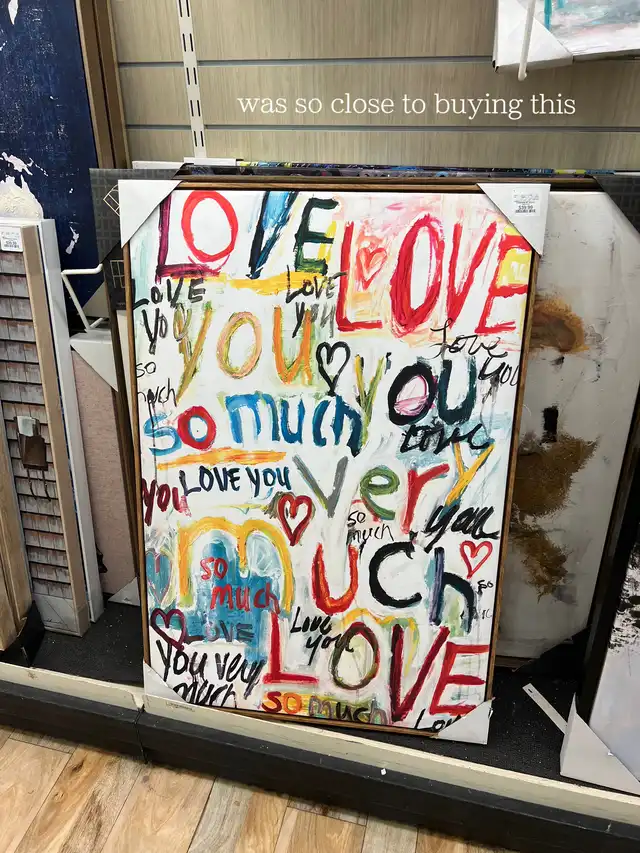 was so close to buying this
LOVE
LOVE
LOVE
YOU
LOVE
YOU
YOU
Love
you
YOU
so
much
so much
LOVE
LOVE YOU
very
YOU
so
much
you
much
so
much
so
LOVE
Love
you
LOVE
you very
much
so much
LO